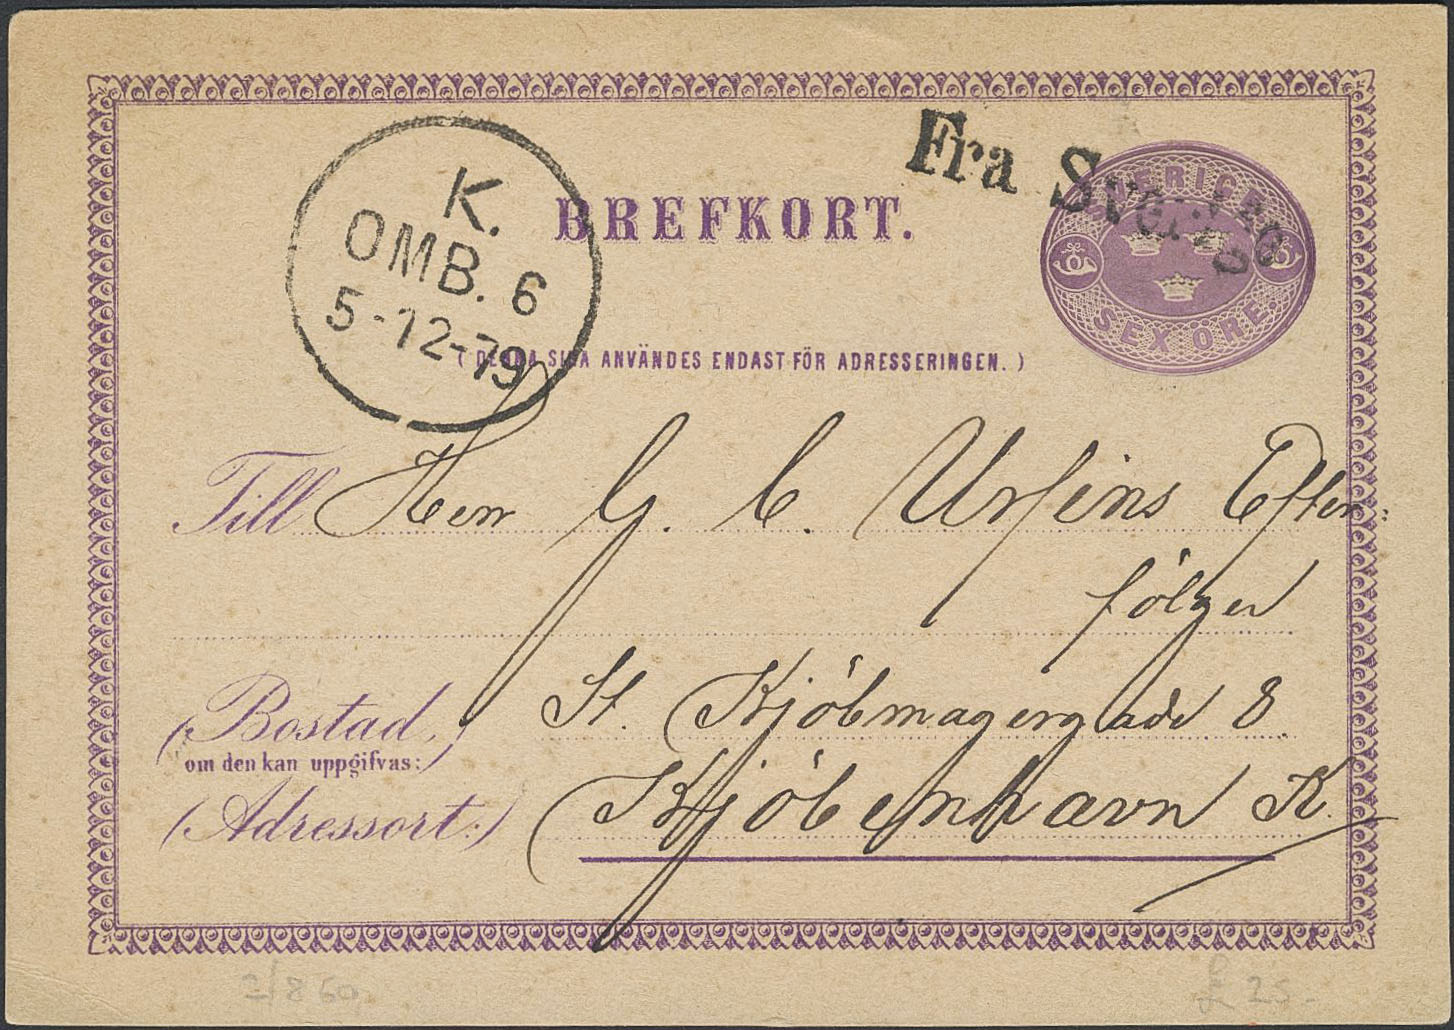 Fra Sverig
K.
OMB. 6
5-12-79
BREFKORT.
SVERIGE
SEX ÖRE
( DENNA SIDA ANVÄNDES ENDAST FÖR ADRESSERINGEN. )
Till Herr G. C. Ursins Efter:
følger
(Bostad,
om den kan uppgifvas:)
St. Kjöbmagergade 8.
(Adressort:)
Kjöbenhavn K.
£ 25.